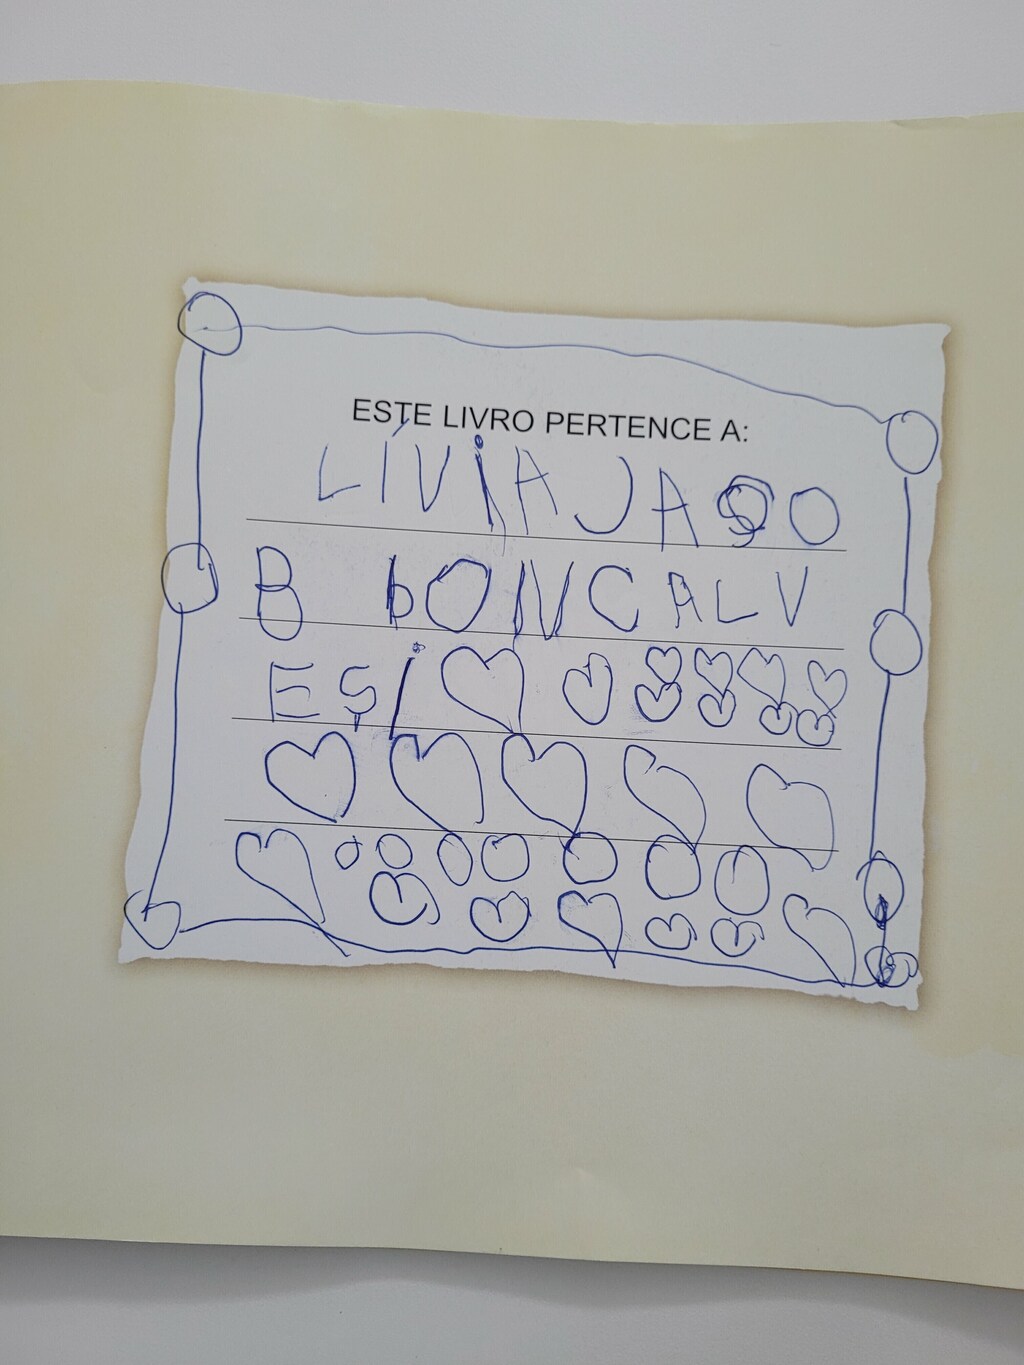 ESTE LIVRO PERTENCE A:
LÍVIA JA O
B bONCALV
ES